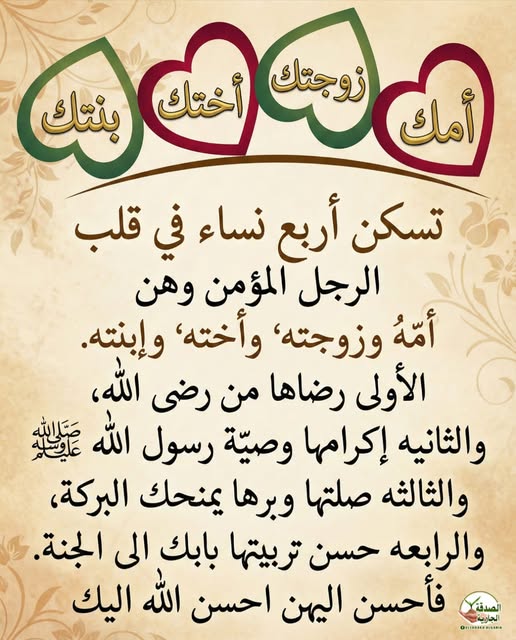 أمك
زوجتك
أختك
بنتك
تسكن أربع نساء في قلب
الرجل المؤمن وهن
أمّهُ وزوجته، وأخته، وإبنته.
الأولى رضاها من رضى الله،
والثانيه إكرامها وصيّة رسول الله ﷺ
والثالثه صلتها وبرها يمنحك البركة،
والرابعه حسن تربيتها بابك الى الجنة.
فأحسن اليهن احسن الله اليك
الصدقة
الجارية